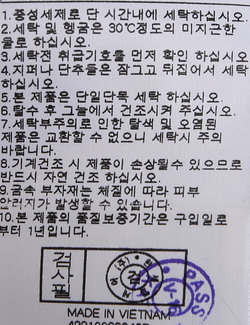 1.중성세제로 단 시간내에 세탁하십시오.
2.세탁 및 헹굼은 30℃정도의 미지근한
물로 하십시오.
3.세탁전 취급기호를 먼저 확인 하십시오
4.지퍼나 단추들은 잠그고 뒤집어서 세탁
하십시오.
5.본 제품은 단일단독 세탁 하십시오.
6.탈수 후 그늘에서 건조시켜 주십시오.
7.세탁부주의로 인한 탈색 및 오염된
제품은 교환할 수 없으니 세탁시 주의
바랍니다.
8.기계건조 시 제품이 손상될수 있으므로
반드시 자연 건조 하십시오.
9.금속 부자재는 체질에 따라 피부
알러지가 발생할 수 있습니다.
10.본 제품의 품질보증기간은 구입일로
부터 1년입니다.
검사필
PASS
MADE IN VIETNAM